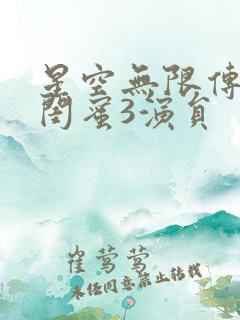 星空無限傳
閨蜜3-演員
崔莺莺
未经同意禁止转载